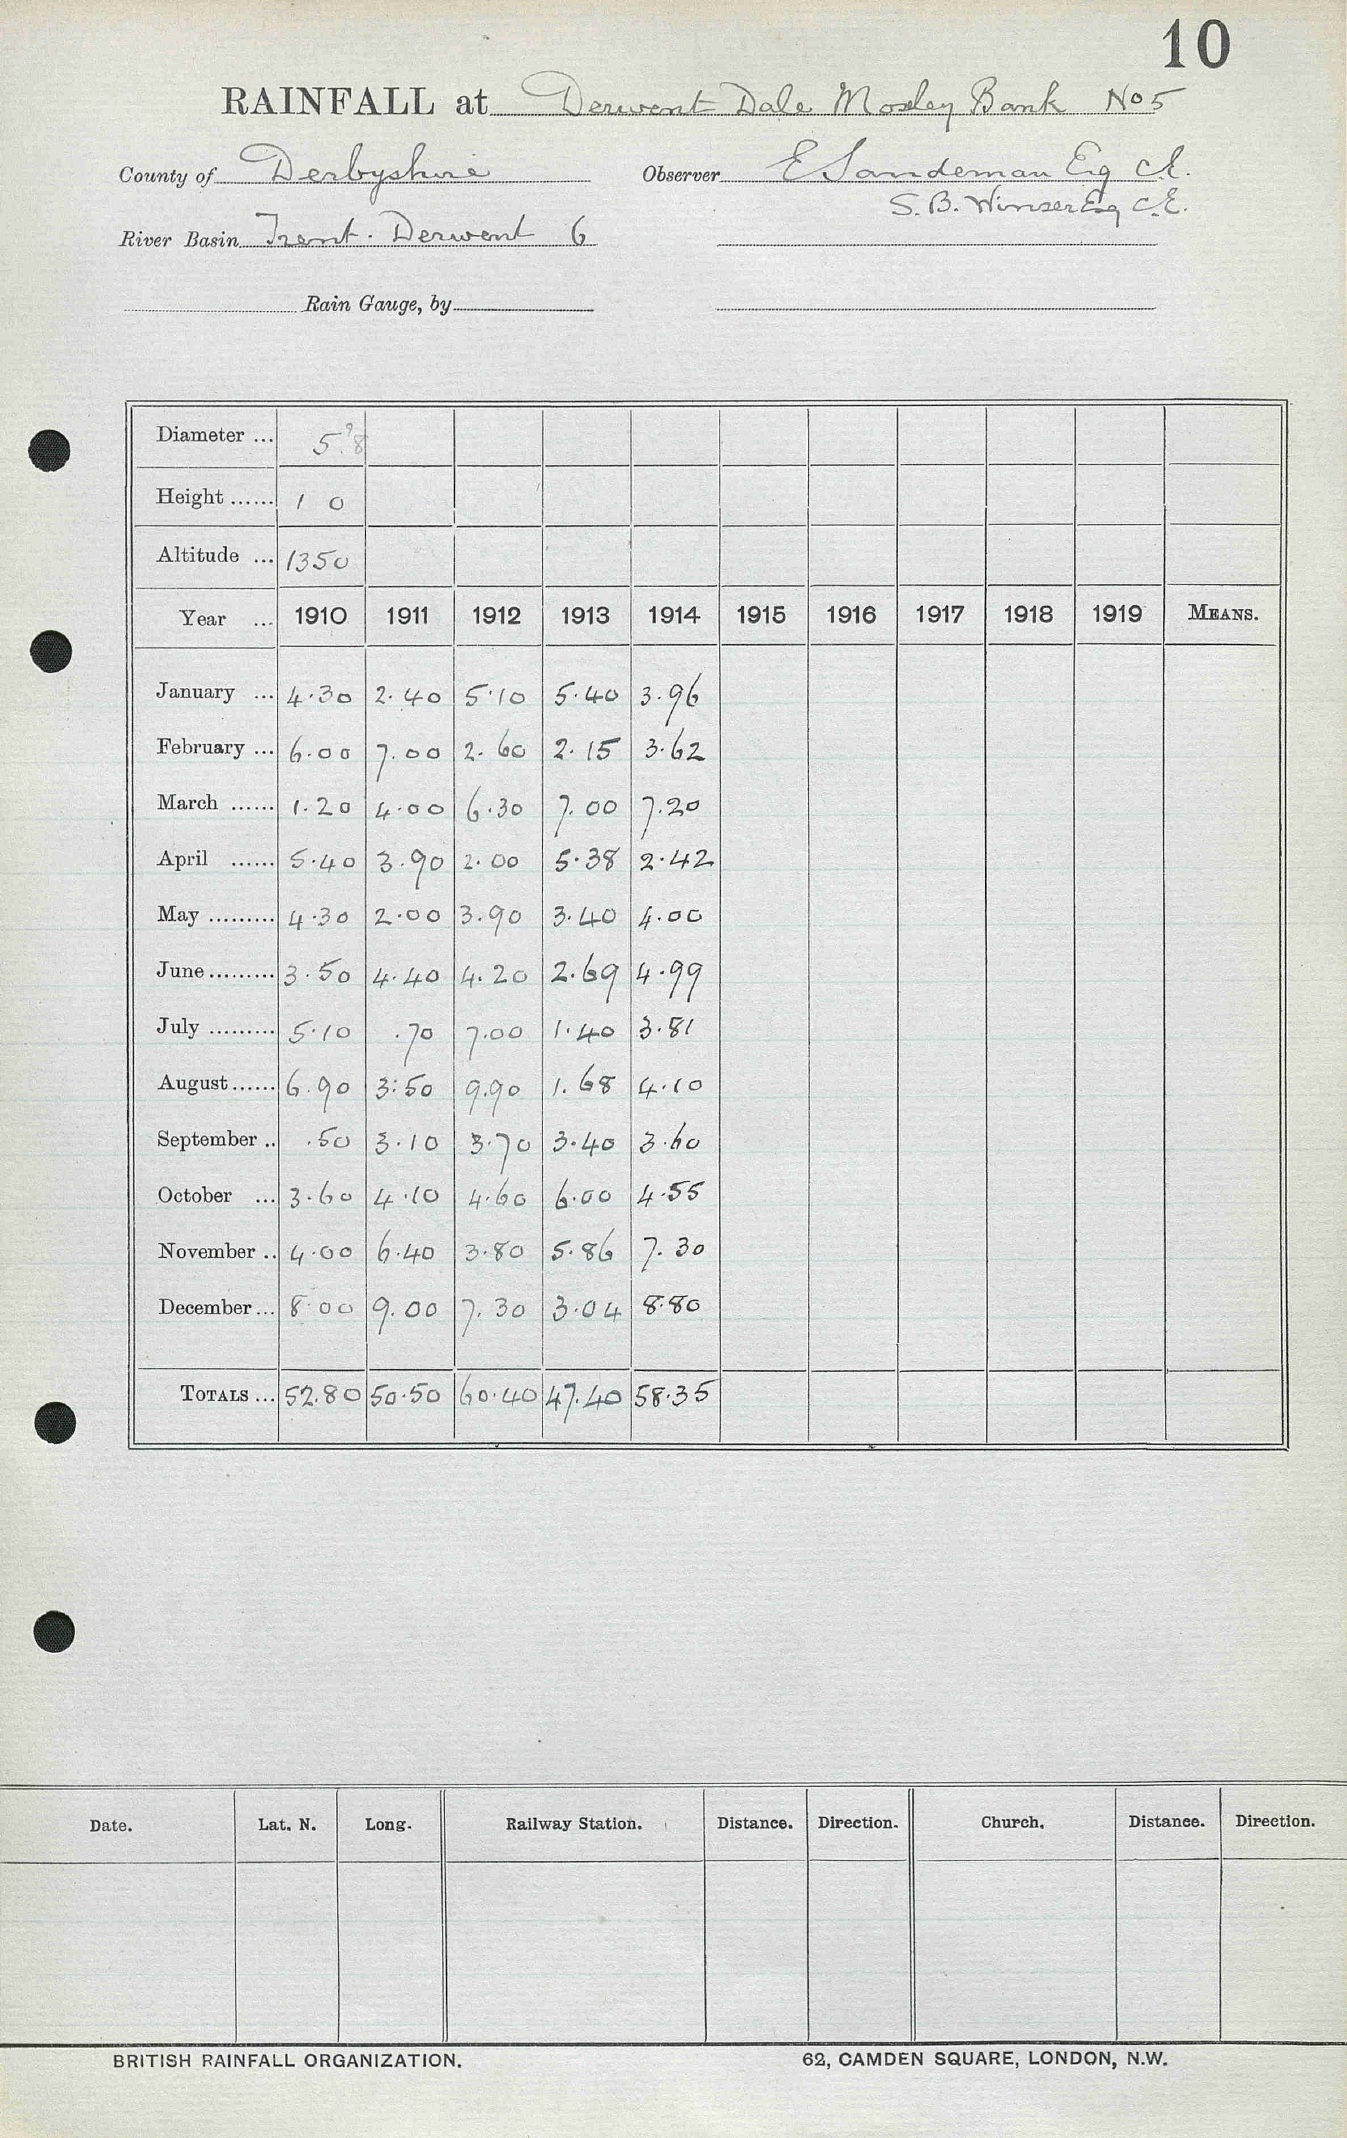 10
RAINFALL at Derwent Dale Mosley Bank No 5
County of Derbyshire Observer E Sandeman Esq C.E.
S. B. Winser Esq C.E.
River Basin Trent. Derwent 6
Rain Gauge, by
Diameter ... 5.8
Height ...... 1 0
Altitude ... 1350
Year ... 1910 1911 1912 1913 1914 1915 1916 1917 1918 1919 MEANS.
January ... 4.30 2.40 5.10 5.40 3.96
February ... 6.00 7.00 2.60 2.15 3.62
March ...... 1.20 4.00 6.30 7.00 7.20
April ...... 5.40 3.90 2.00 5.38 2.42
May ......... 4.30 2.00 3.90 3.40 4.00
June ......... 3.50 4.40 4.20 2.69 4.99
July ......... 5.10 .70 7.00 1.40 3.81
August ...... 6.90 3.50 9.90 1.68 4.10
September .. .50 3.10 3.70 3.40 3.60
October ... 3.60 4.10 4.60 6.00 4.55
November .. 4.00 6.40 3.80 5.86 7.30
December ... 8.00 9.00 7.30 3.04 8.80
TOTALS ... 52.80 50.50 60.40 47.40 58.35
Date. Lat. N. Long. Railway Station. Distance. Direction. Church. Distance. Direction.
BRITISH RAINFALL ORGANIZATION. 62, CAMDEN SQUARE, LONDON, N.W.